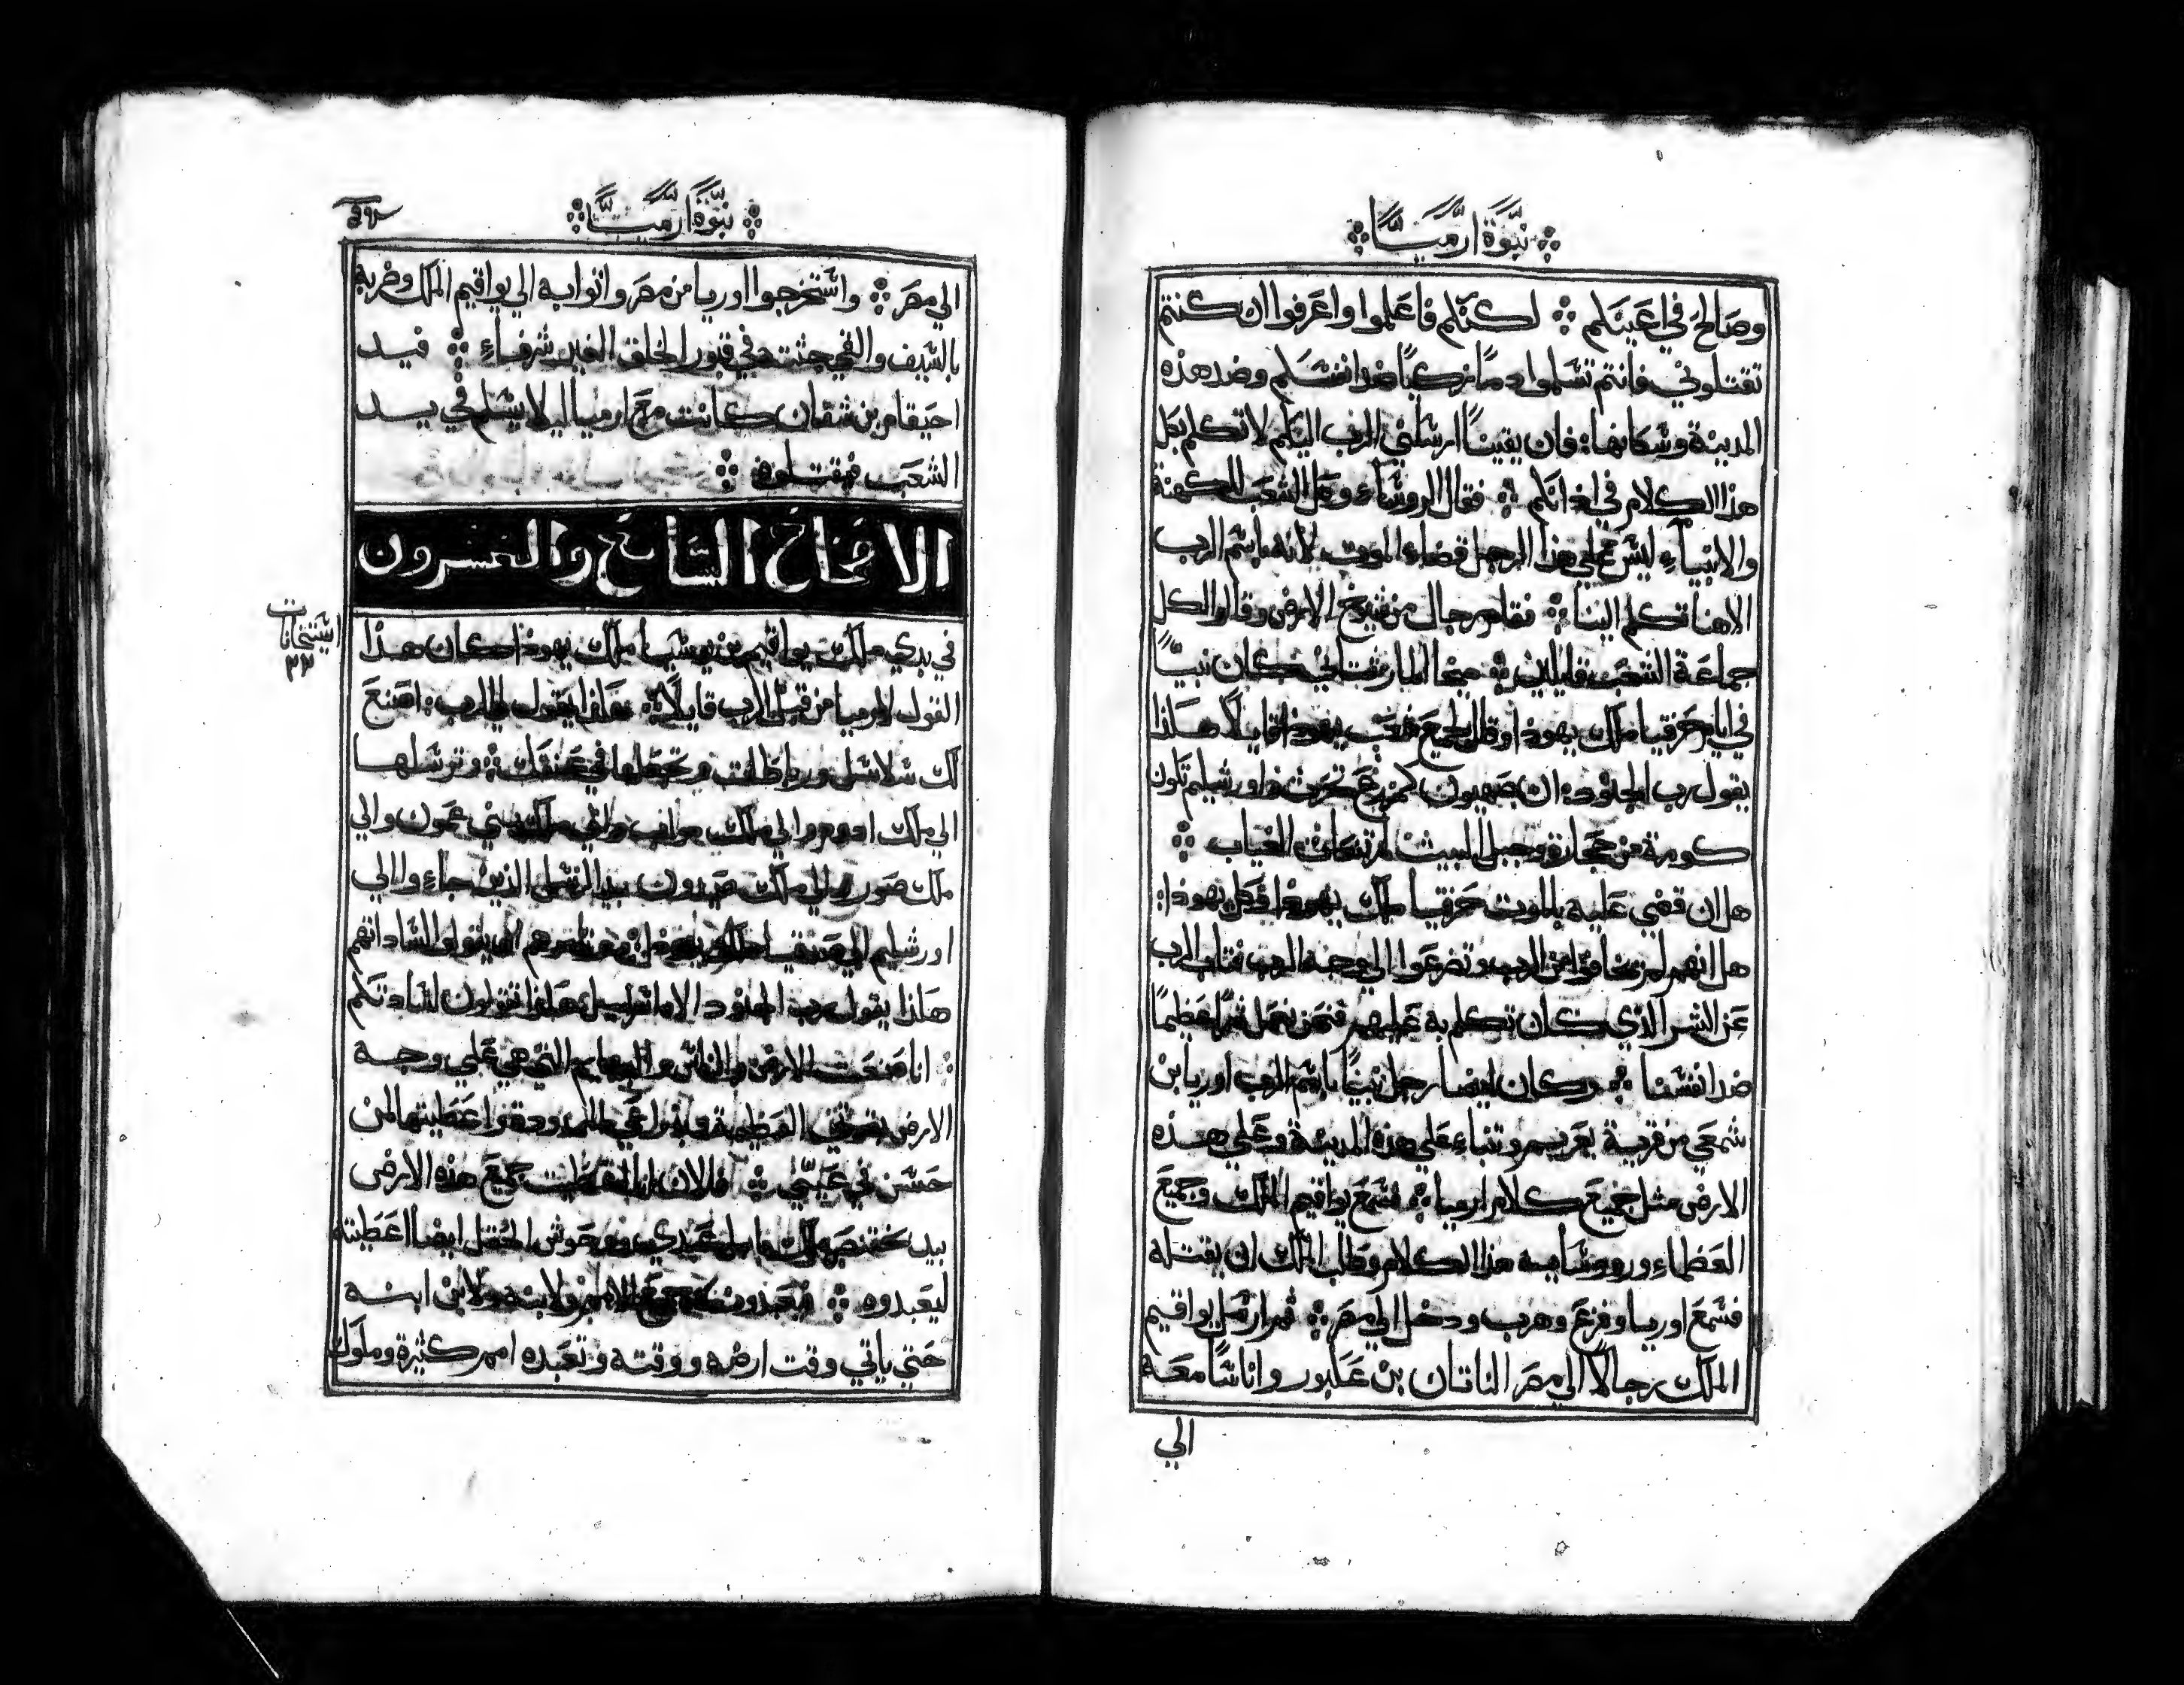 نبوة ارميا
وصالح في اعينكم لكنكم فاعلموا واعرفوا ان كنتم
تقتلوني فانتم تسلموا دما زكيا ضد انفسكم وضد هذه
المدينة وسكانها فان يقينا ارسلني الرب اليكم لاتكلم بكل
هذا الكلام في اذانكم فقال الروساء وكل الشعب للكهنة
والانبياء ليس علي هذا الرجل قضاء الموت لانه باسم الرب
الاهنا تكلم الينا فقام رجال من شيوخ الارض وقالوا لكل
جماعة الشعب قايلين ميخا المارشتاني كان نبيا
في ايام حزقيا ملك يهوذا وقال لجميع شعب يهوذا قايلا هكذا
يقول رب الجنود ان صهيون كمزرع تحرث واورشليم تكون
كومة من حجارة وجبل البيت لمرتفعات الغياب
هل ان قضي عليه بالموت حزقيا ملك يهوذا وكل يهوذا
هل انهم لم يخافوا من الرب وتضرعوا الي وجه الرب فتاب الرب
عن الشر الذي كان تكلم به عليهم فنحن نعمل شرا عظيما
ضد انفسنا وكان ايضا رجل نبيا باسم الرب اوريا بن
شمعي من قرية يعريم وتنباء علي هذه المدينة وعلي هذه
الارض مثل جميع كلام ارميا فسمع يواقيم الملك وجميع
العظماء وروسايه هذا الكلام وطلب الملك ان يقتله
فسمع اوريا وفزع وهرب ودخل الي مصر ثم ارسل يواقيم
الملك رجالا الي مصر الناتان بن عكبور واناسا معه
الي
نبوة ارميا
الي مصر واستخرجوا اوريا من مصر واتوا به الي يواقيم الملك وضربه
بالسيف والقي جثته في قبور الخلق الغير شرفاء فيد
احيقام بن شفان كانت مع ارميا ليلا يسلم في يد
الشعب فيقتلوه
الاصحاح السابع والعشرون
في بدي ملك يواقيم بن يوشيا ملك يهوذا كان هذا
القول لارميا من قبل الرب قايلا هكذا يقول لي الرب اصنع
لك سلاسل ورباطات وتجعلها في عنقك وترسلها
الي ملك ادوم والي ملك مواب والي ملك بني عمون والي
ملك صور والي ملك صيدون بيد الرسل الذين جاءوا الي
اورشليم الي صدقيا ملك يهوذا وتامرهم ان يقولوا لساداتهم
هكذا يقول رب الجنود الاه اسراييل هكذا تقولون لساداتكم
انا صنعت الارض والناس والبهايم التي هي علي وجه
الارض بقوتي العظيمة وبذراعي الممدودة واعطيتها لمن
حسن في عيني فالان انا اعطيت جميع هذه الارض
بيد بختنصر ملك بابل عبدي ووحوش الحقل ايضا اعطيته
ليعبدوه فيعبدونه جميع الامم ولابنه ولابن ابنه
حتي ياتي وقت ارضه ووقته وتعبده امم كثيرة وملوك
استخانات
٣٣